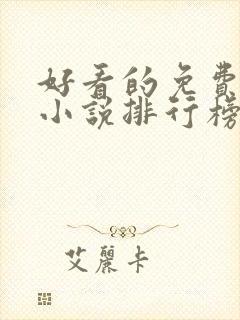 好看的免費
小說排行榜
艾麗卡